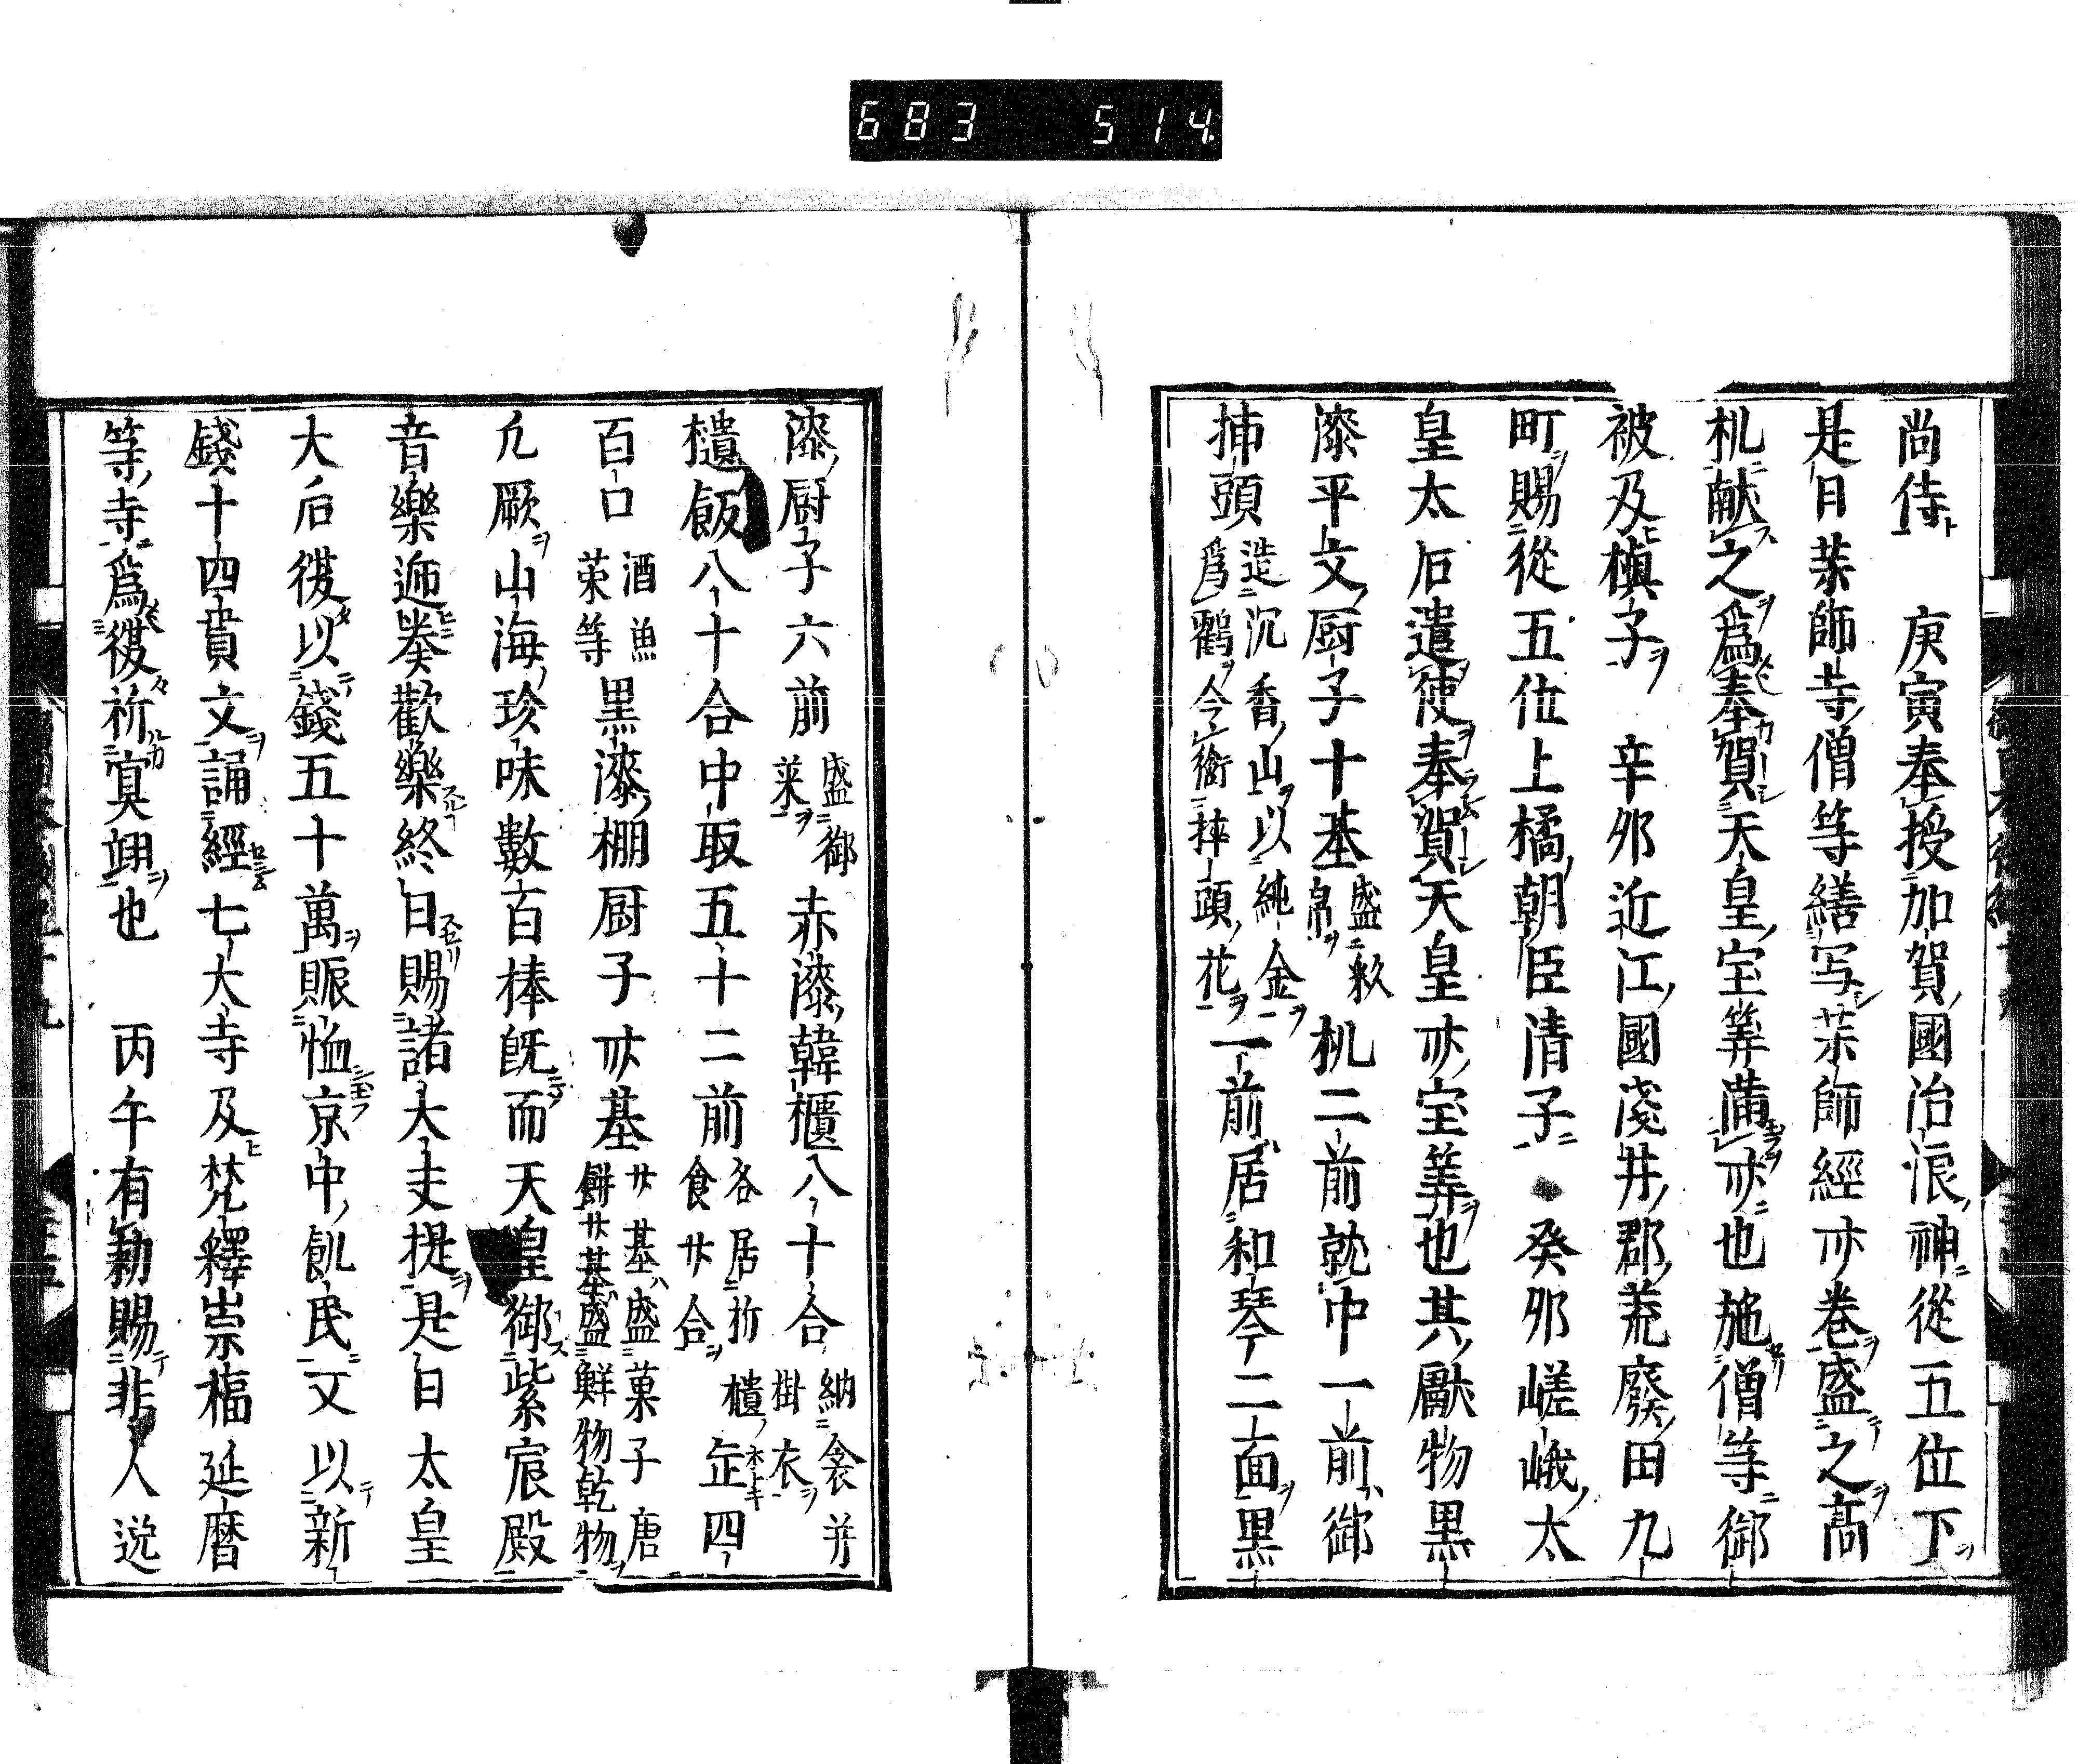 683 514
尚侍 庚寅奉授加賀國治浪神從五位下
是日薬師寺僧等繕写薬師經卌卷盛之高
机献之爲奉賀天皇宝筭満卌也施僧等御
被及槇子 辛卯近江國淺井郡荒廢田九
町賜從五位上橘朝臣清子 癸卯嵯峨太
皇太后遣使奉賀天皇卌宝筭也其獻物黒
漆平文厨子十基盛軟帛机二前就中一前御
挿頭造沉香山以純金爲鶴令衘挿頭花一前居和琴二面黒
漆厨子六前盛御菜赤漆韓櫃八十合納衾并掛衣櫃缶四
樻飯八十合中取五十二前各居折食廿合
百口酒魚菜等黒漆棚厨子卌基廿基盛菓子唐餅廿基盛鮮物乾物
凢厥山海珍味數百捧旣而天皇御紫宸殿
音樂逓奏歡樂終日賜諸大夫提是日太皇
大后復以錢五十萬賑恤京中飢民又以新
錢十四貫文誦經七大寺及梵釋崇福延暦
等寺爲復祈冥翊也 丙午有勅賜非人逸